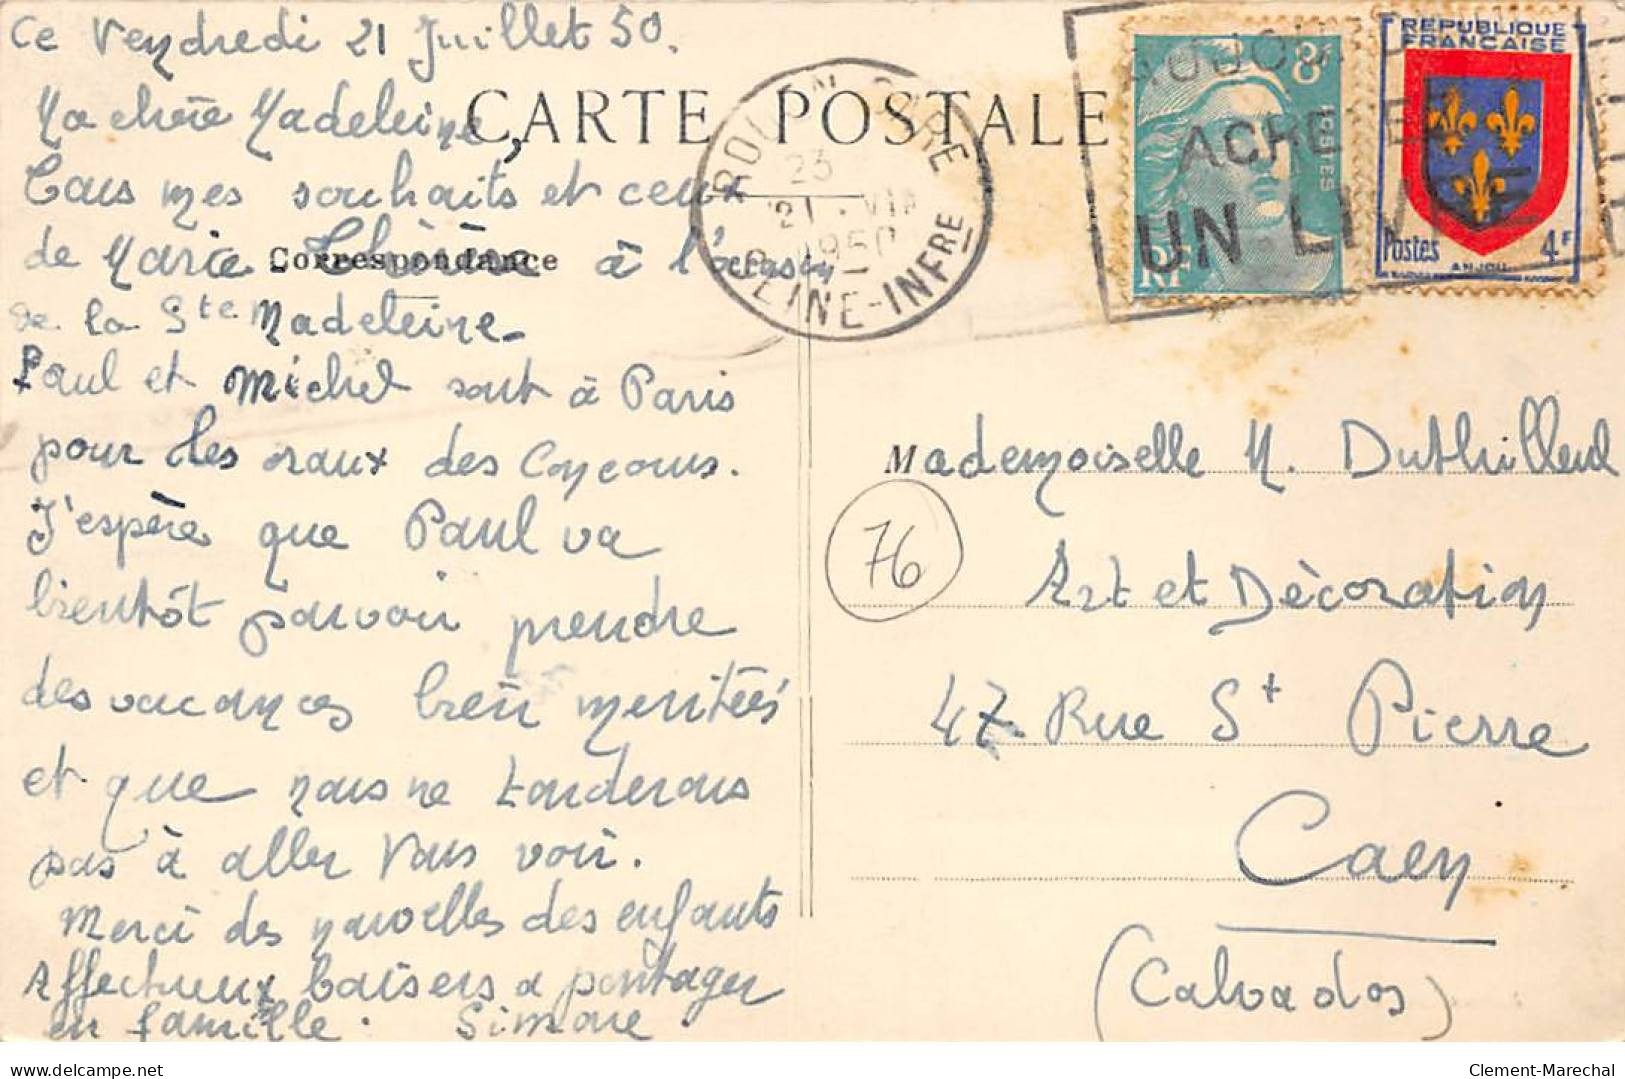 Ce Vendredi 21 Juillet 50.
CARTE POSTALE
Ma chère Madeleine,
Tous mes souhaits et ceux
de Marie Thérèse à l'occasion
Correspondance
de la Ste Madeleine.
Paul et Michel sont à Paris
pour les oraux des Concours.
J'espère que Paul va
bientôt pouvoir prendre
des vacances bien méritées
et que nous ne tarderons
pas à aller vous voir.
Merci des nouvelles des enfants
Affectueux baisers à partager
en famille. Simone.
ROUEN GARE
23
21 - VII
1950
SEINE-INFRE
ACHE
UN LIVRE
8F
POSTES
RF
REPUBLIQUE
FRANÇAISE
Postes 4F
ANJOU
Mademoiselle M. Duthilleul
76
Art et Décoration
47 Rue St Pierre
Caen
(Calvados)
Clement-Marechal
delcampe.net